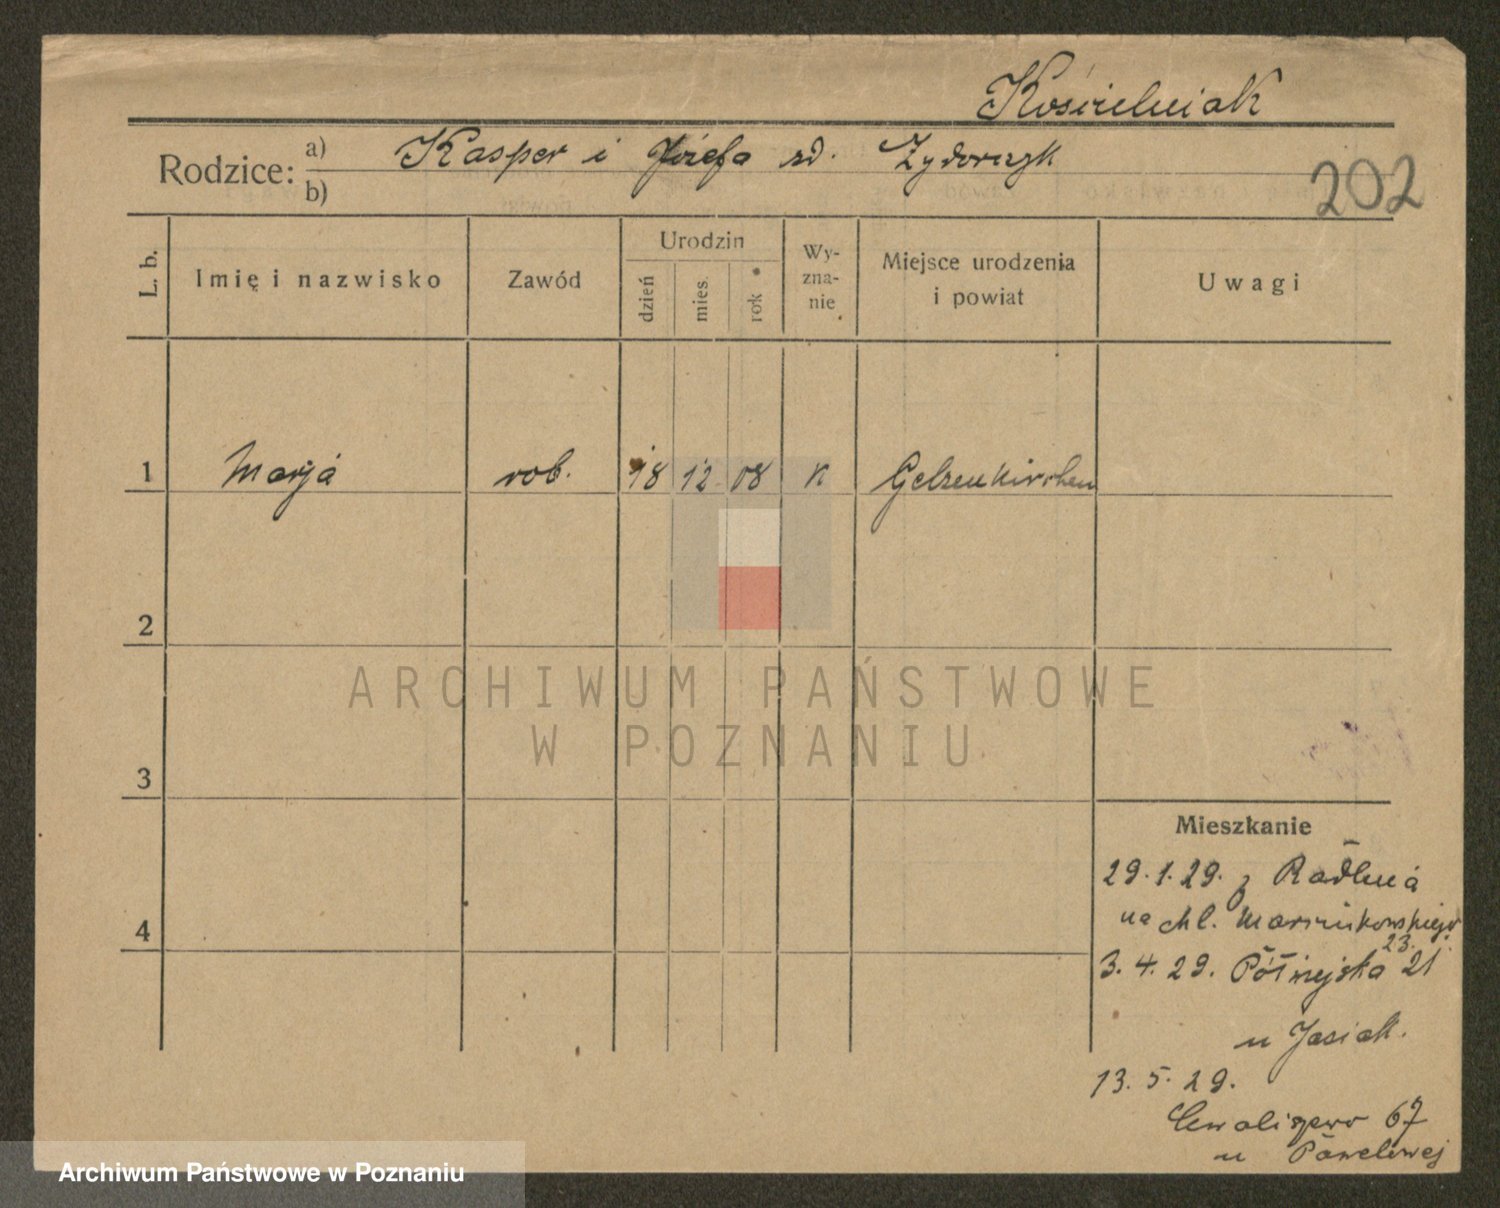 Kościelniak
Rodzice: a) Kasper i Józefa zd. Zydorczyk
b)
202
L. b. Imię i nazwisko Zawód Urodzin dzień mies. rok Wyznanie Miejsce urodzenia i powiat Uwagi
1 Marja rob. 18 12 08 K Gelsenkirchen
2
3
4
Mieszkanie
29. 1. 29. z Radlina
na Al. Marcinkowskiego 23.
3. 4. 29. Półwiejska 21
u Jasiak.
13. 5. 29.
Chwaliszewo 67
u
ARCHIWUM PAŃSTWOWE
W POZNANIU
Archiwum Państwowe w Poznaniu